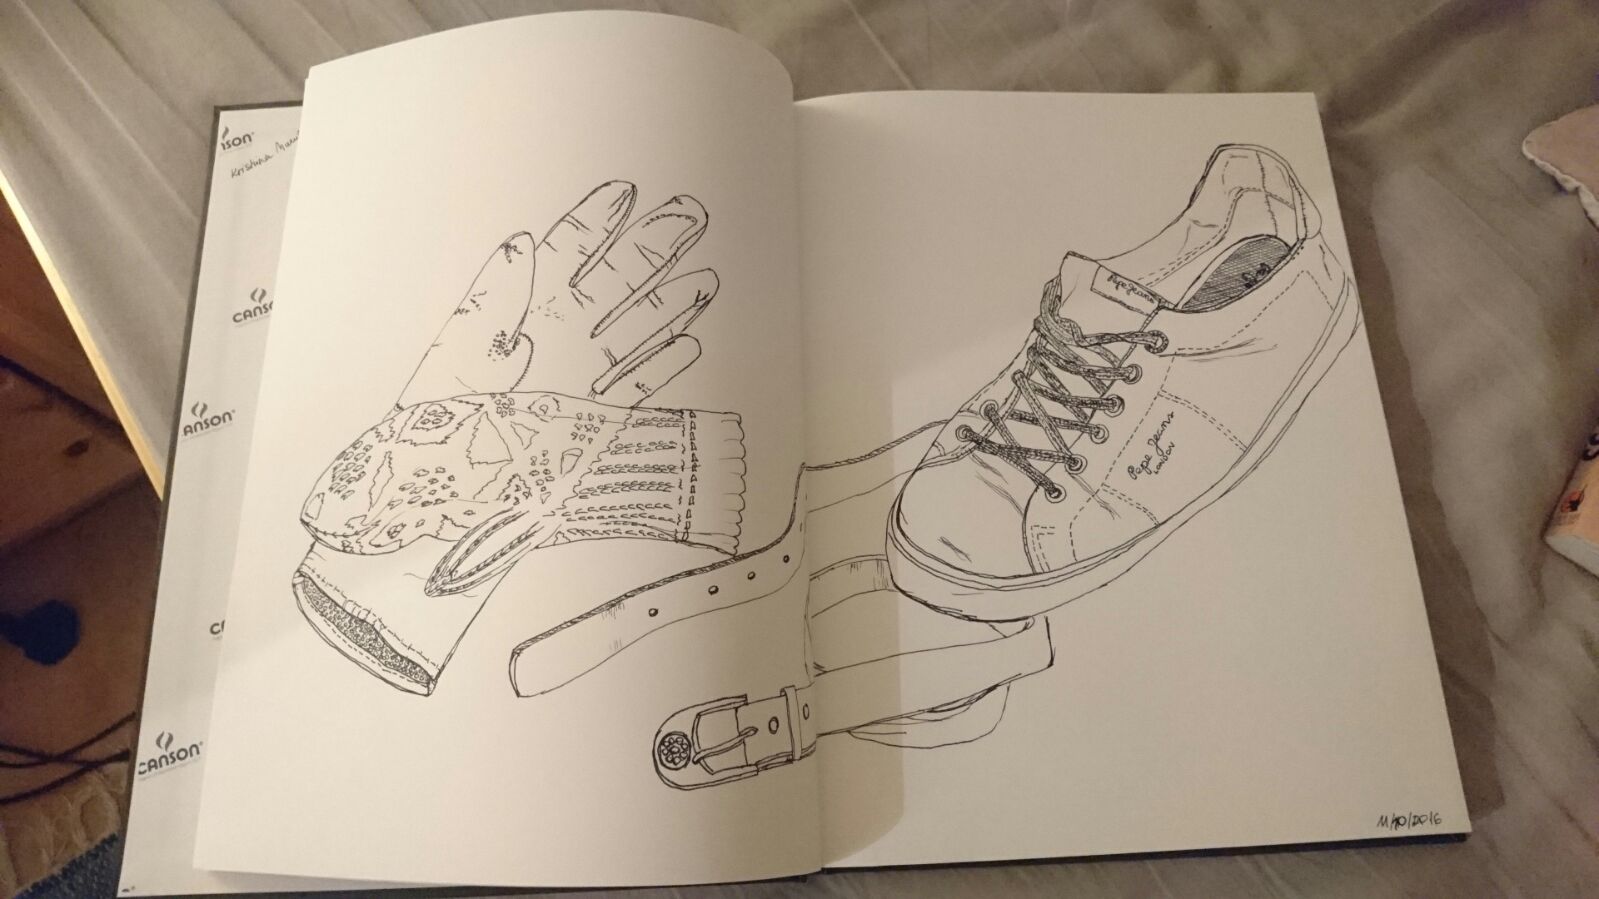 NSON
Kristina
CANSO
ANSON
CANSON
Pepe Jeans
Pepe Jeans
LONDON
11/10/2016